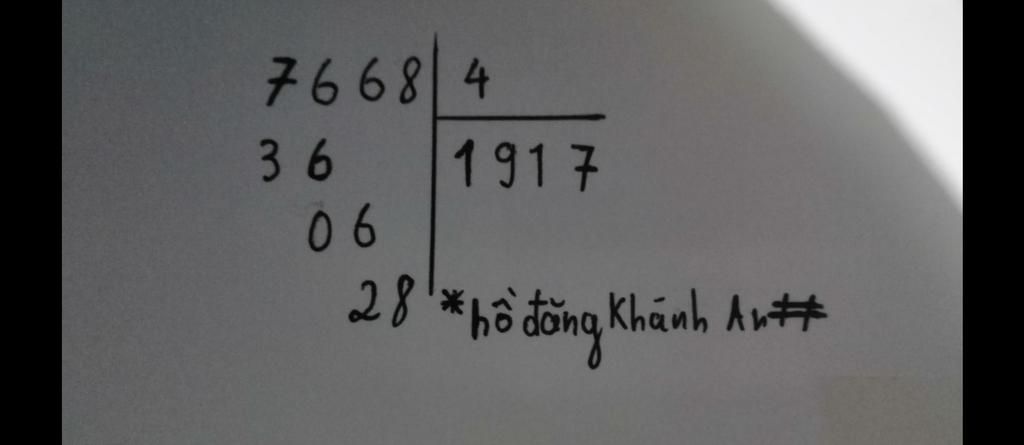 7668 4
36 1917
06
28 *hồ đăng Khánh An#